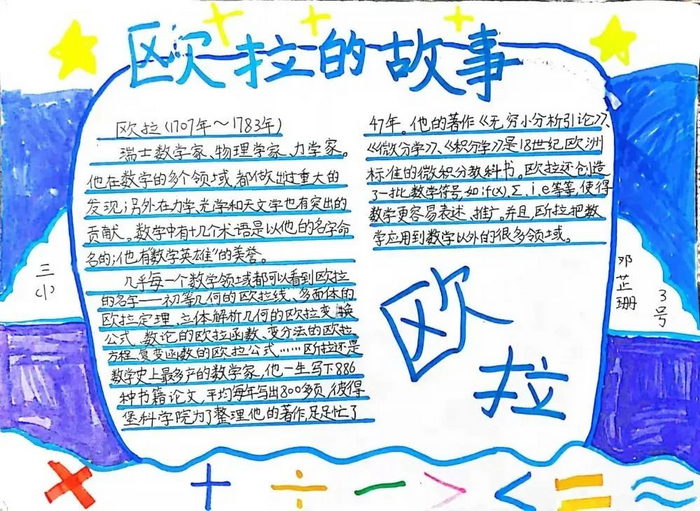 欧拉的故事
欧拉(1707年～1783年)
瑞士数学家、物理学家、力学家。
他在数学的多个领域,都做出过重大的
发现;另外在力学,光学和天文学也有突出的
贡献。数学中有十几个术语是以他的名字命
名的;他有"数学英雄"的美誉。
几乎每一个数学领域都可以看到欧拉
的名字——初等几何的欧拉线、多面体的
欧拉定理、立体解析几何的欧拉变换
公式、数论的欧拉函数、变分法的欧拉
方程、复变函数的欧拉公式……断拉还是
数学史上最多产的数学家,他一生写下886
种书籍论文,平均每年写出800多页,彼得
堡科学院为了整理他的著作,足足忙了
47年。他的著作《无穷小分析引论》、
《微分学》、《积分学》是18世纪欧洲
标准的微积分教科书。欧拉还创造
了一批数学符号,如:f(x),Σ,i,e等等,使得
数学更容易表述、推广。并且断拉把数
学应用到数学以外的很多领域。
欧
拉
三(1)
邓芷珊
3号
× + ÷ − > < = ≈